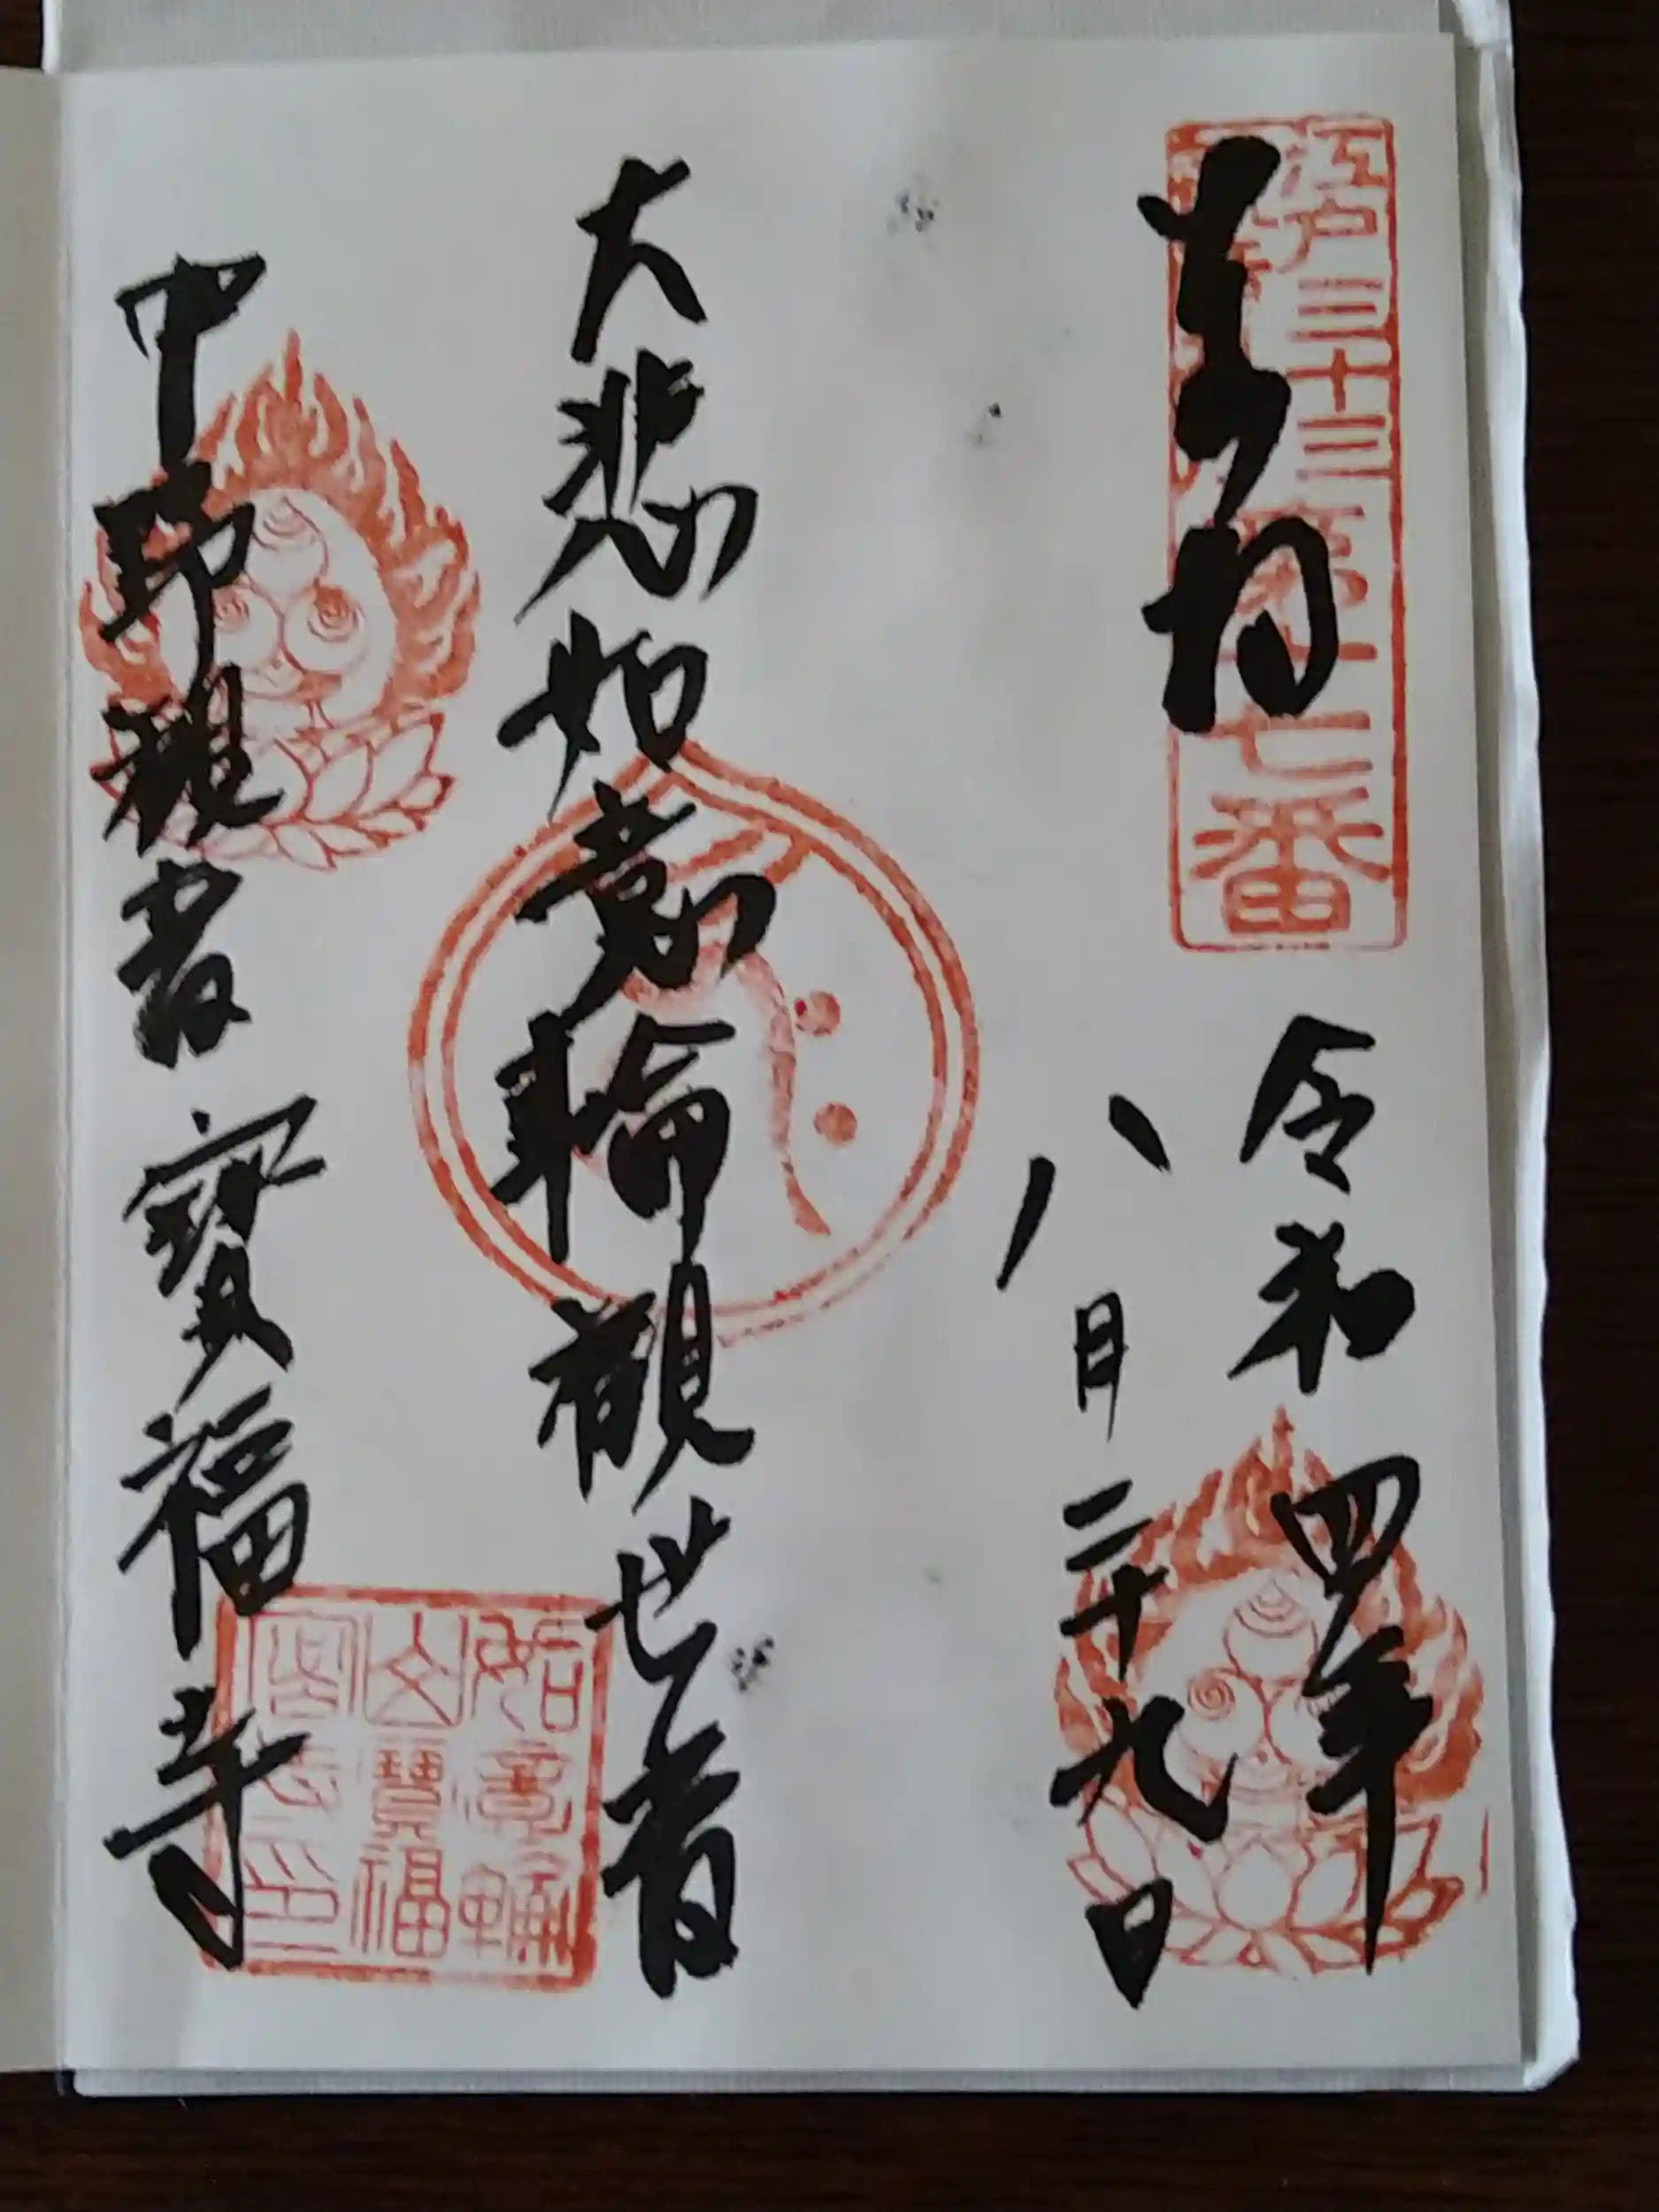 奉拝
江戸三十三
第十七番
令和四年
八月二十九日
大悲如意輪観世音
中野観音 寶福寺
如意輪
山寶福
密寺印